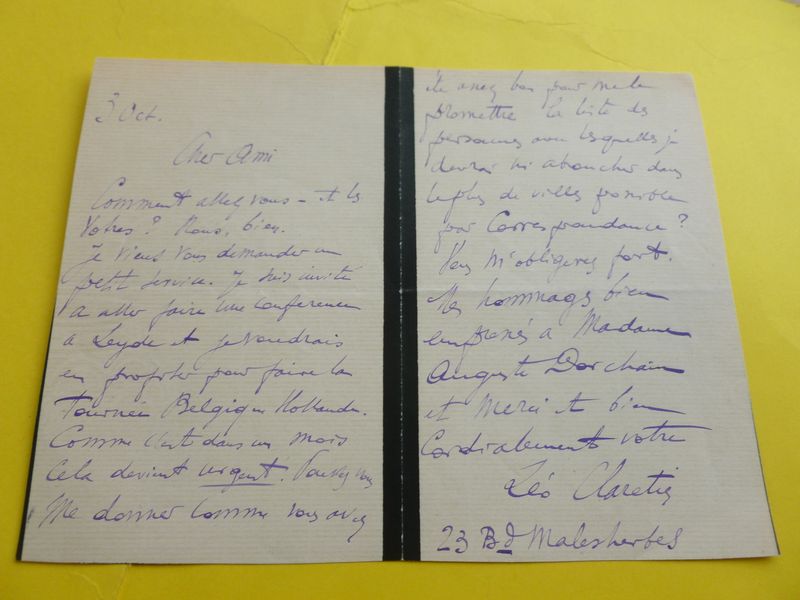 3 Oct.
Cher Ami
Comment allez vous – et les
Vôtres ? Nous, bien.
Je viens vous demander un
petit service. Je suis invité
a aller faire une conférence
à Leyde et je voudrais
en profiter pour faire la
Tournée Belgique Hollande.
Comme c'est dans un mois
cela devient urgent. Pouvez vous
Me donner comme vous avez
été assez bon pour me le
promettre la liste des
personnes avec lesquelles je
devrai m'aboucher dans
le plus de villes possible
par Correspondance ?
Vous m'obligerez fort.
Mes hommages bien
empressés à Madame
Auguste Dorchain
et Merci et bien
Cordialement votre
Léo Claretie
23 Bd Malesherbes